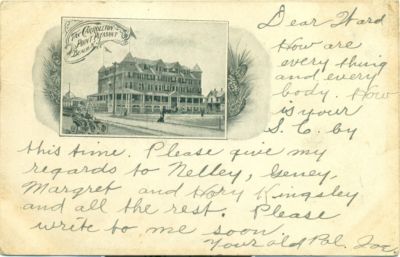 THE CARROLLTON
POINT PLEASANT
BEACH, N.J.
Dear Ward
How are
every thing
and every
body. How
is your
S. C. by
this time. Please give my
regards to Nelley, Geney,
Margret and Hory Kingsley
and all the rest. Please
write to me soon.
Your old Pal. Joe